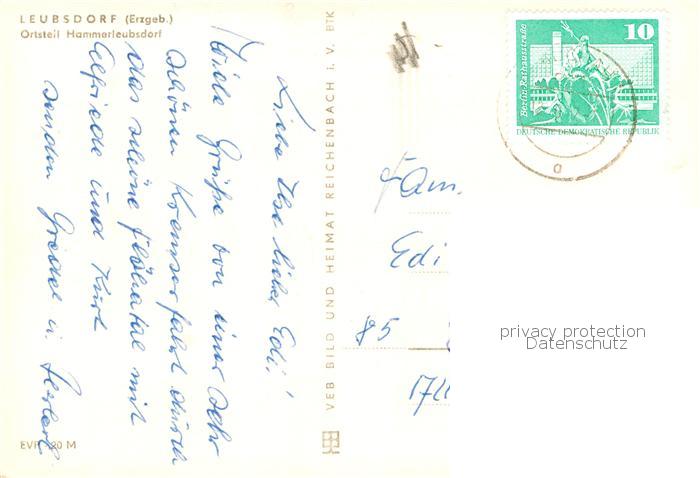 LEUBSDORF (Erzgeb.)
Ortsteil Hammerleubsdorf
Liebe Ilse lieber Edi!
Viele Grüße von einer sehr
schönen Kremserfahrt durch
das schöne Flöhatal mit
Elfriede und Kurt
senden Gretel u. Herbert
EVP -,20 M
VEB BILD UND HEIMAT REICHENBACH I. V. BTK
Berlin, Rathausstraße
10
DEUTSCHE DEMOKRATISCHE REPUBLIK
a
Fam.
Edi
85
privacy protection
Datenschutz